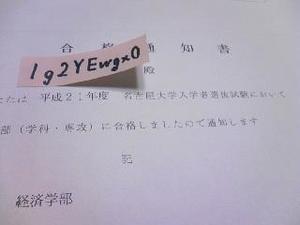 合格通知書
1g2YEwgx0
殿
たは 平成21年度 名古屋大学入学者選抜試験において
部(学科・専攻)に合格しましたので通知します
記
経済学部